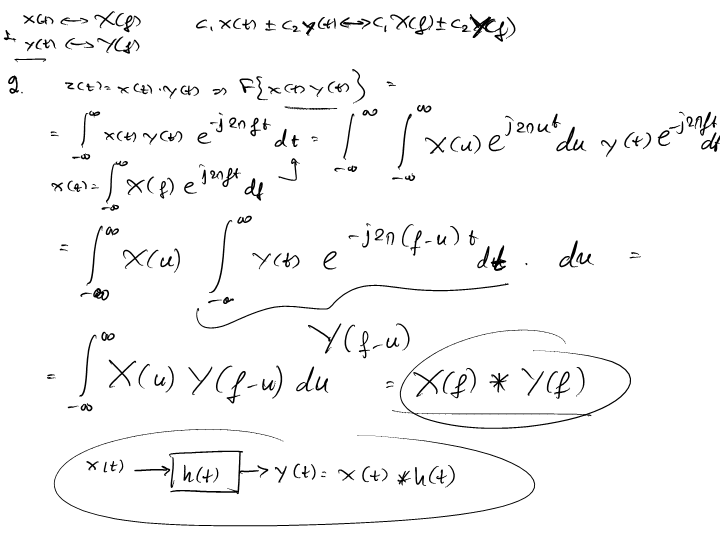 x(t) ↔ X(f)    c₁ x(t) ± c₂ y(t) ↔ c₁ X(f) ± c₂ Y(f)
1. y(t) ↔ Y(f)
2. z(t) = x(t) · y(t) ⇒ F{x(t) y(t)} =
= ∫_{-∞}^{∞} x(t) y(t) e^{-j2πft} dt = ∫_{-∞}^{∞} ∫_{-∞}^{∞} X(u) e^{j2πut} du y(t) e^{-j2πft} dt
x(t) = ∫_{-∞}^{∞} X(f) e^{j2πft} df
= ∫_{-∞}^{∞} X(u) ∫_{-∞}^{∞} y(t) e^{-j2π(f-u)t} dt · du =
Y(f-u)
= ∫_{-∞}^{∞} X(u) Y(f-u) du = X(f) * Y(f)
x(t) → h(t) → y(t) = x(t) * h(t)